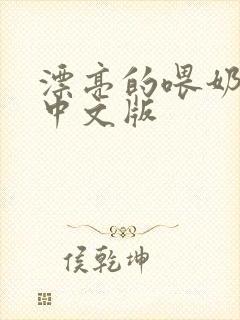 漂亮的喂奶
中文版
侯乾坤